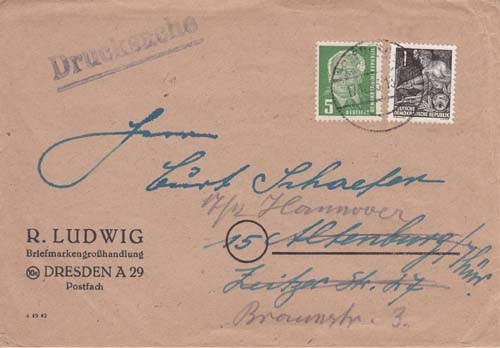 Drucksache
5
DEUTSCHE DEMOKRATISCHE REPUBLIK
1
DEUTSCHE
DEMOKRATISCHE REPUBLIK
Herrn
Curt Schaefer
Hannover
15 Altenburg/Thür.
Zeitzer Str. 27
Braunstr. 3.
R. LUDWIG
Briefmarkengroßhandlung
DRESDEN A 29
Postfach